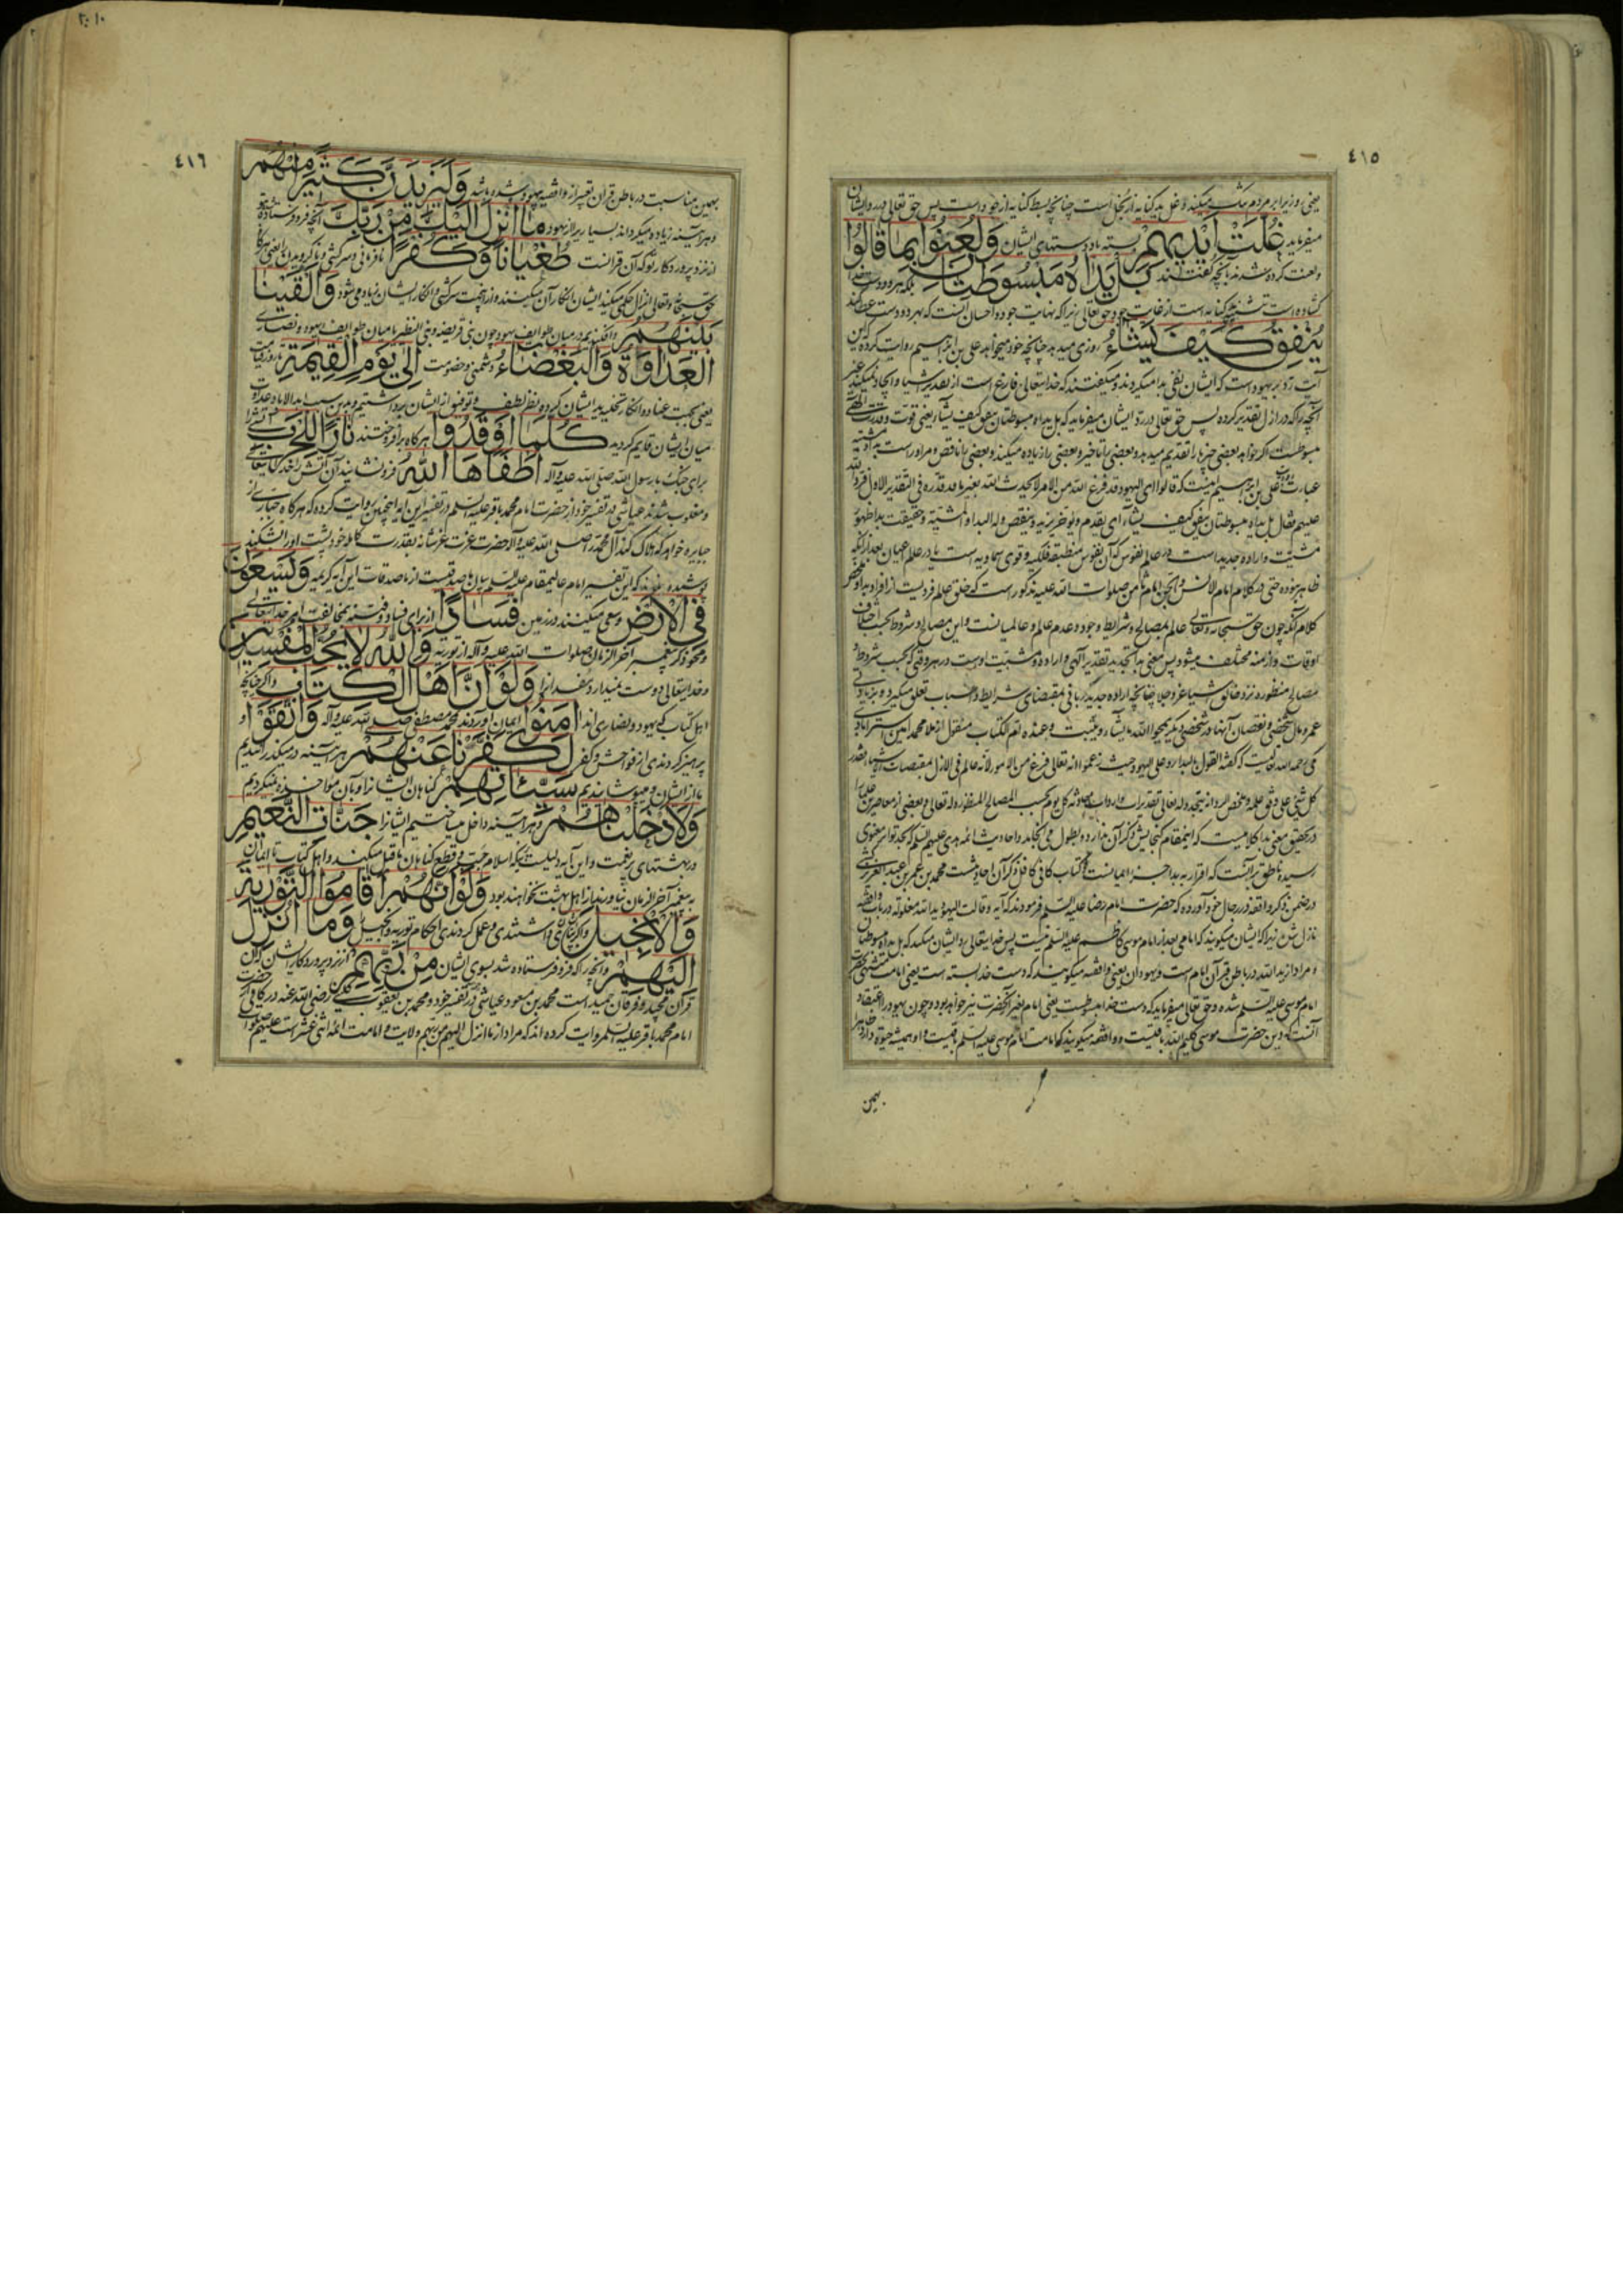 ٤١٥
یعنی روزیرا بر مردم تنک میکیند و غل ید کنایه از بخل است چنانچه بسط کنایه از جود است پس حق تعالی در رد ایشان
میفرماید غُلَّتْ اَیْدِیهِمْ بسته باد دستهای ایشان وَلُعِنُوا بِمَا قَالُوا
و لعنت کرده شدند بآنچه گفتند بَلْ یَدَاهُ مَبْسُوطَتَانِ بلکه هر دو دست خدا
کشاده است جود حق تعالی زیرا که نهایت جود و احسان آنست که بهر دو دست عطا کند
یُنْفِقُ کَیْفَ یَشَاءُ روزی میدهد چنانچه خود میخواهد علی بن ابراهیم روایت کرده که این
آیت رد بر یهود است که ایشان نفی بدا میکردند و میگفتند که خدایتعالی فارغ است از تقدیر اشیا و ایجاد نمیکند غیر
آنچه را که در ازل تقدیر کرده پس حق تعالی در رد ایشان میفرماید که بل یداه مبسوطتان ینفق کیف یشاء یعنی قوت و قدرت
مبسوطست اگر خواهد بعضی چیزها را تقدیم میدهد و بعضی را تاخیر و بعضی را زیاده میکند و بعضی را ناقص و مر او راست بدا و مشیت
عبارت علی بن ابراهیم اینست که قالوا ای الیهود قد فرغ الله من الامر لا یحدث الله بغیر ما قد قدره فی التقدیر الاول فرد الله
علیهم فقال بل یداه مبسوطتان ینفق کیف یشاء ای یقدم و یؤخر و یزید و ینقص و له البداء و المشیة و حقیقت بدا ظهور
مشیت و اراده جدید است در عالم نفوس که آن نفوس منطبقه فلکیه و قوی سماویه است یا در عالم عیان بعد از آنکه
ظاهر نبوده حتی در کلام امام الانس و الجن امام ثامن صلوات الله علیه مذکور است که خلق عالم فردیست از افراد بدا و
کلام آنکه چون حق سبحانه و تعالی عالم بمصالح و شرایط وجود و عدم عالم و عالمیانست و این مصالح و شروط بحسب اختلاف
اوقات و ازمنه مختلف میشود پس معنی بدا تجدید تقدیر الهی و اراده و مشیت اوست در هر وقتی که بحسب شروط و
مصالح منظوره نزد خالق اشیا عز و جل چنانچه اراده جدید ربانی بمقتضای شرایط و اسباب تعلق میگیرد بزیادتی
عمر و مال شخصی و نقصان آنها در شخصی دیگر یمحوا الله ما یشاء و یثبت و عنده ام الکتاب منقول از ملا محمد امین استرابادی
رحمه الله علی الیهود حیث زعموا انه تعالی فرغ من الامور لانه عالم فی الازل بمقتضیات الاشیاء فقدر
کل شیء علی وفق علمه و ملخص الرد انه یتجدد له تعالی تقدیرات و ارادات کل یوم بحسب المصالح المنظوره له تعالی و بعضی از معاصرین علما را
در تحقیق معنی بدا کلامیست که اینمقام گنجایش ذکر آن ندارد و بطول می انجامد و احادیث ائمه هدی علیهم السلم که بحد تواتر معنوی
رسیده ناطق بر آنست که اقرار به بدا جزء ایمانست کتاب کافی کافل ذکر آن احادیثست محمد بن عمر بن عبد العزیز کشی
در ضمن ذکر واقفه در رجال خود آورده که حضرت امام رضا علیه السلم فرمودند که آیه و قالت الیهود ید الله مغلوله در باب واقفه
نازل شد زیرا که ایشان میگویند که امامی بعد از امام موسی کاظم علیه السلم نیست پس خدایتعالی رد ایشان میکند که بل یداه مبسوطتان
و مراد از ید الله در باطن قرآن امام است و یهودان یعنی واقفه میگویند که دست خدا بسته است یعنی امامت منتهی بحضرت
امام موسی علیه السلم شده و حق تعالی میفرماید که دست خدا مبسوطست یعنی امام بغیر آنحضرت نیز خواهد بود و چون یهود را اعتقاد
آنست که دین حضرت موسی کلیم الله باقیست و واقفه میگویند که امامت امام موسی علیه السلم باقیست و او همیشه حیوة دارد
بهمین
٤١٦
بهمین مناسبت در باطن قرآن تعبیر از واقفه بیهود شده باشد وَلَیَزِیدَنَّ کَثِیرًا مِنْهُمْ
و هر آینه زیاده میگرداند بسیاریرا از یهود مَا اُنْزِلَ اِلَیْکَ مِنْ رَبِّکَ آنچه فرو فرستاده شد بتو
از نزد پروردکار تو که آن قرآنست طُغْیَانًا وَکُفْرًا نافرمانی و سرکشی و ناکرویدن را یعنی هرگاه
حق سبحانه و تعالی انزال حکمی میکند ایشان انکار آن میکنند و از اینجهت سرکشی و انکار ایشان زیاده می شود وَاَلْقَیْنَا
بَیْنَهُمُ و افکندیم در میان طوایف یهود چون بنی قریضه و بنی النظیر یا میان طوایف یهود و نصاری
الْعَدَاوَةَ وَالْبَغْضَاءَ دشمنی و خصومت اِلَی یَوْمِ الْقِیٰمَةِ تا روز قیامت
یعنی بجهت عناد و انکار تخلیه ایشان کرده نظر لطف و توفیق از ایشان برداشتیم و بدین سبب ابدالاباد عداوت
میان ایشان قایم گردید کُلَّمَا اَوْقَدُوا هرگاه برافروختند نَارًا لِلْحَرْبِ آتشی را
برای جنگ با رسول الله صلی الله علیه و آله اَطْفَاَهَا اللهُ فرو نشانید آن آتش را خدایتعالی
و مغلوب شدند عیاشی در تفسیر خود از حضرت امام محمد باقر علیه السلم در تفسیر این آیه اینچنین روایت کرده که هرگاه جباری از
جبابره خواهد که هلاک کند آل محمد را صلی الله علیه و آله حضرت عزت عز شانه بقدرت کامله خود پشت او را شکند
پوشیده نماند که این تفسیر امام عالیمقام علیه السلم بیان ماصدقیست از ماصدقات این آیه کریمه وَیَسْعَوْنَ
فِی الْاَرْضِ و سعی میکنند در زمین فَسَادًا از برای فساد و فتنه بمخالفت امر خدایتعالی
و محو ذکر پیغمبر آخر الزمان صلوات الله علیه و آله از توریة وَاللهُ لَا یُحِبُّ الْمُفْسِدِینَ
و خدایتعالی دوست نمیدارد مفسدانرا وَلَوْ اَنَّ اَهْلَ الْکِتَابِ و اگر چنانچه
اهل کتاب که یهود و نصاری اند اٰمَنُوا ایمان آوردند بمحمد مصطفی صلی الله علیه و آله وَاتَّقَوْا و
پرهیز کردندی از فواحش و کفر لَکَفَّرْنَا عَنْهُمْ هر آینه در میگذرانیدیم
ما از ایشان و میپوشانیدیم سَیِّئَاتِهِمْ گناهان ایشانرا و بآن مؤاخذه نمیکردیم
وَلَاَدْخَلْنَاهُمْ و هر آینه داخل میساختیم ایشانرا جَنَّاتِ النَّعِیمِ
در بهشتهای پر نعمت و این آیه دلیلست بآنکه اسلام قطع گناهان ماقبل میکند و اهل کتاب تا ایمان
به پیغمبر آخر الزمان نیاورند از اهل بهشت نخواهند بود وَلَوْ اَنَّهُمْ اَقَامُوا التَّوْرٰیةَ
وَالْاِنْجِیلَ و اگر ایشان بپای داشتندی و عمل کردندی احکام توریة و انجیل وَمَا اُنْزِلَ
اِلَیْهِمْ و آنچیزیرا که فرو فرستاده شد بسوی ایشان مِنْ رَبِّهِمْ از نزد پروردکار ایشان که آن
قرآن مجید و فرقان حمید است محمد بن مسعود عیاشی در تفسیر خود و محمد بن یعقوب کلینی رضی الله عنه در کافی از حضرت
امام محمد باقر علیه السلم روایت کرده اند که مراد از ما انزل الیهم من ربهم ولایت و امامت ائمه اثنی عشر است علیهم صلوات